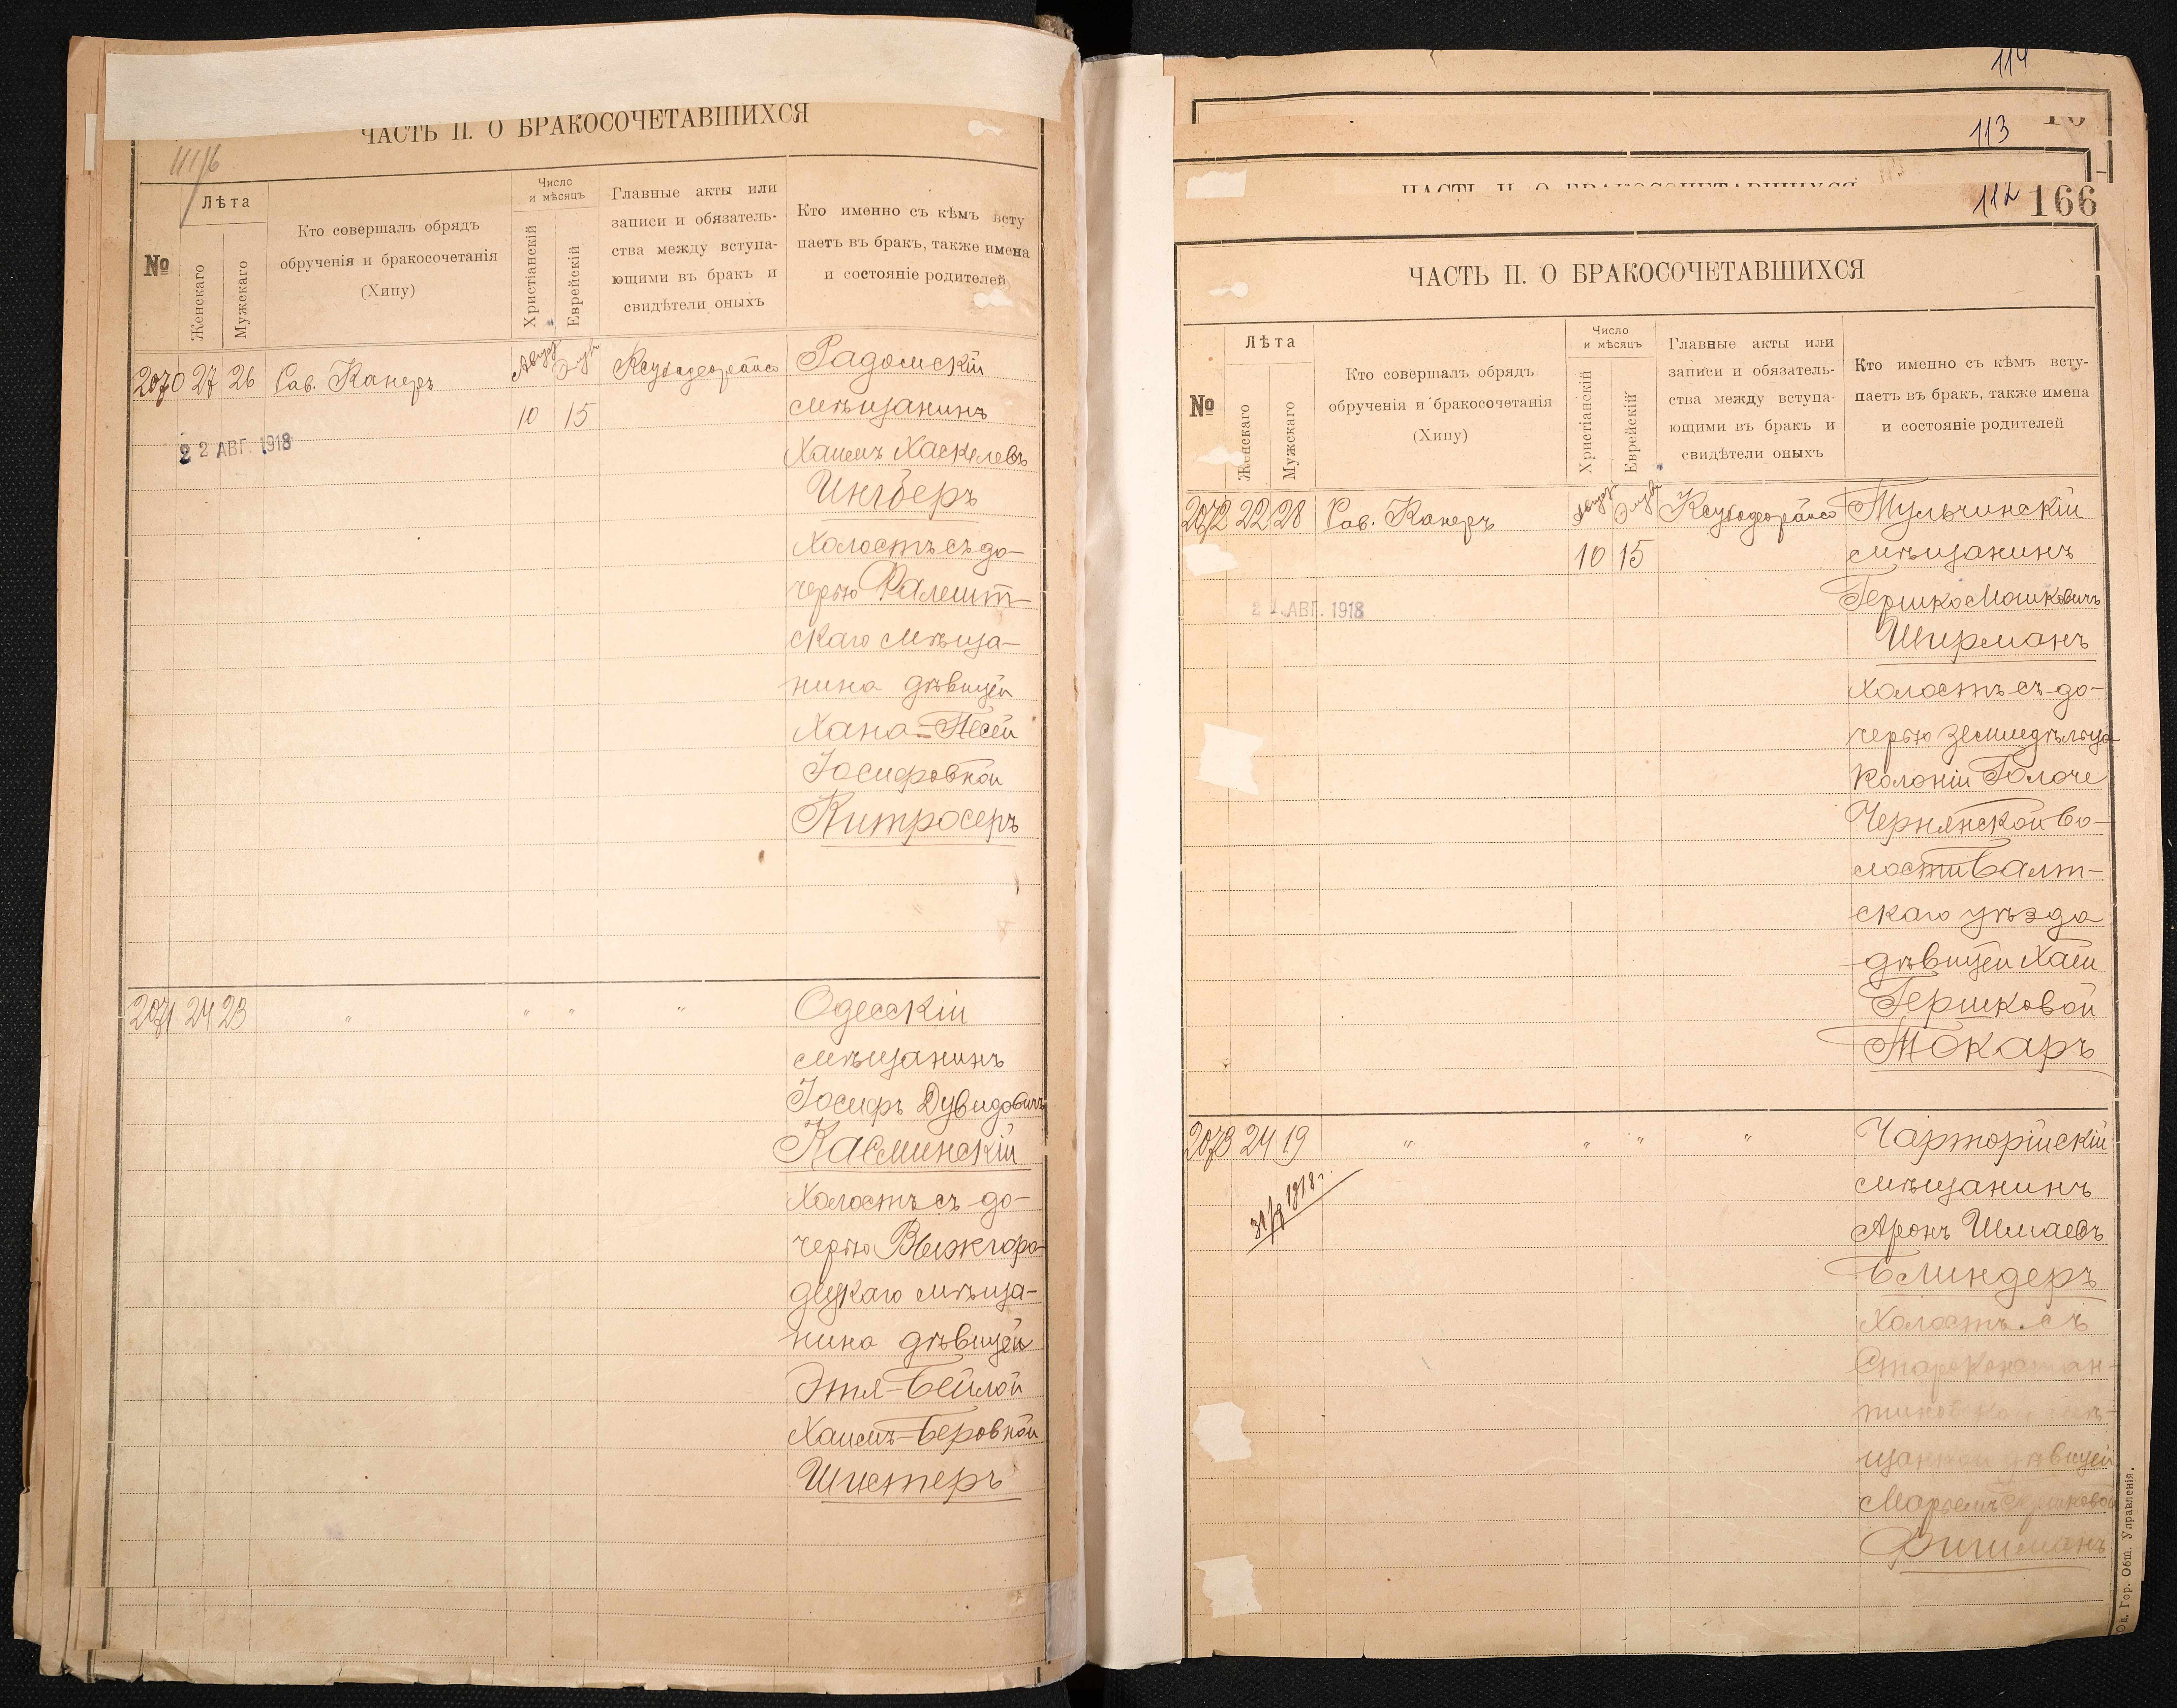 ЧАСТЬ II. О БРАКОСОЧЕТАВШИХСЯ
№
Лѣта
Женскаго
Мужскаго
Кто совершалъ обрядъ
обрученія и бракосочетанія
(Хипу)
Число
и мѣсяцъ
Христіанскій
Еврейскій
Главные акты или
записи и обязатель-
ства между вступа-
ющими въ бракъ и
свидѣтели оныхъ
Кто именно съ кѣмъ всту
паетъ въ бракъ, также имена
и состояніе родителей
2070 27 26 Рав. Канеръ
10 15
2 2 АВГ. 1918
Радомскій
мѣщанинъ
Хаимъ Хаскелевъ
Ингберъ
холостъ съ до-
черью Фалешт-
скаго мѣща-
нина дѣвицей
Хана-Песей
Іосифовной
Китросеръ
2071 24 23 " " " "
Одесскій
мѣщанинъ
Іосифъ Дувидовичъ
Каминскій
холостъ съ до-
черью Вышгоро-
децкаго мѣща-
нина дѣвицей
Этя-Бейлой
Хаимъ-Беровной
Шистеръ
114
113
112 166
ЧАСТЬ II. О БРАКОСОЧЕТАВШИХСЯ
№
Лѣта
Женскаго
Мужскаго
Кто совершалъ обрядъ
обрученія и бракосочетанія
(Хипу)
Число
и мѣсяцъ
Христіанскій
Еврейскій
Главные акты или
записи и обязатель-
ства между вступа-
ющими въ бракъ и
свидѣтели оныхъ
Кто именно съ кѣмъ всту-
паетъ въ бракъ, также имена
и состояніе родителей
2072 22 28 Рав. Канеръ
10 15
АВГ. 1918
Тульчинскій
мѣщанинъ
Гершко Мошковичъ
Ширманъ
холостъ съ до-
черью земледѣльца
колоніи Голоче
Чернянской во-
лости Балт-
скаго уѣзда
дѣвицей Хаей
Гершковой
Токаръ
2073 24 19 " " " "
1918 г.
Чарторійскій
мѣщанинъ
Аронъ Шмаевъ
Блиндеръ
холостъ съ
Староконстан-
дѣвицей
Фишманъ
Од. Гор. Общ. Управленія.